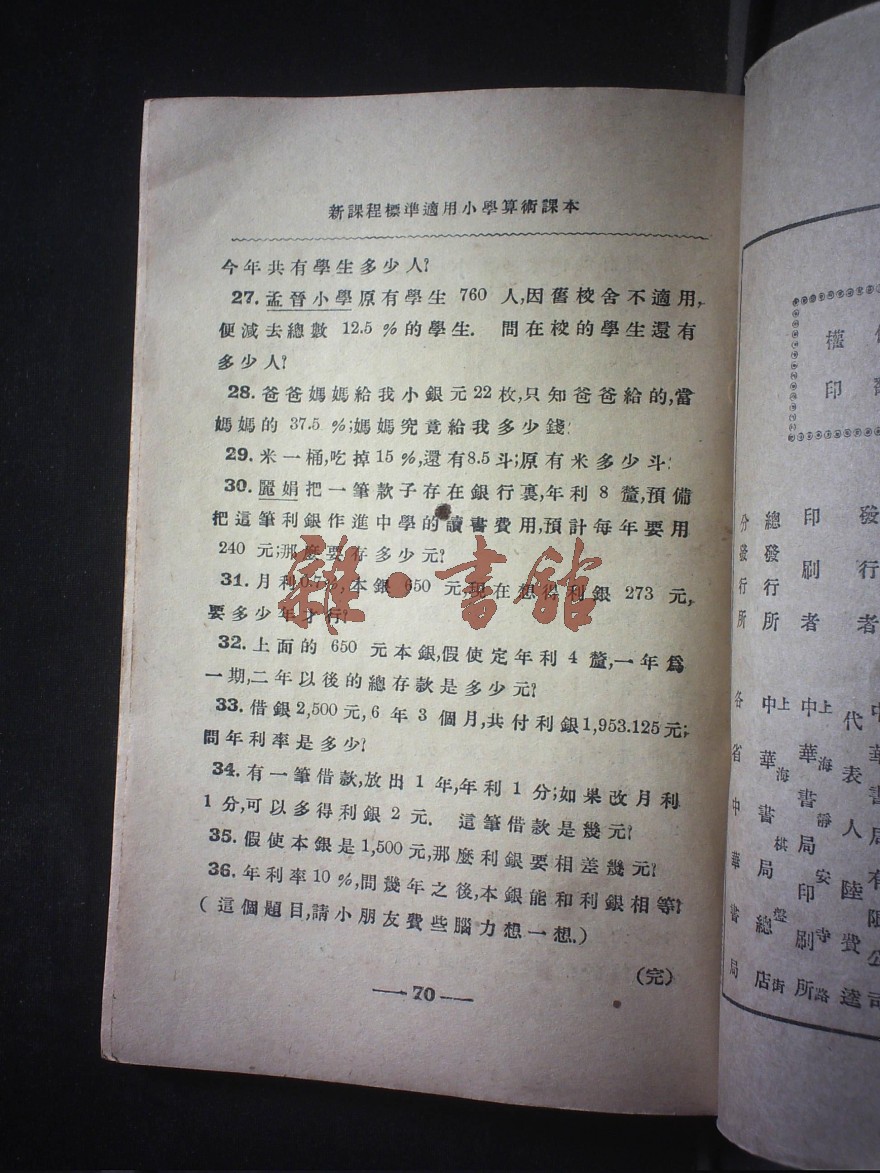 新課程標準適用小學算術課本
今年共有學生多少人?
27. 孟晉小學原有學生 760 人,因舊校舍不適用,
便減去總數 12.5 % 的學生. 問在校的學生還有
多少人?
28. 爸爸媽媽給我小銀元 22 枚,只知爸爸給的,當
媽媽的 37.5 %;媽媽究竟給我多少錢?
29. 米一桶,吃掉 15 %,還有 8.5 斗;原有米多少斗?
30. 麗娟把一筆款子存在銀行裏,年利 8 釐,預備
把這筆利銀作進中學的讀書費用,預計每年要用
240 元;那麼要存多少元?
31. 月利 0.7%,本銀 650 元,現在想得利銀 273 元,
要多少年才行?
32. 上面的 650 元本銀,假使定年利 4 釐,一年爲
一期,二年以後的總存款是多少元?
33. 借銀 2,500 元, 6 年 3 個月,共付利銀 1,953.125 元;
問年利率是多少?
34. 有一筆借款,放出 1 年,年利 1 分;如果改月利
1 分,可以多得利銀 2 元. 這筆借款是幾元?
35. 假使本銀是 1,500 元,那麼利銀要相差幾元?
36. 年利率 10 %,問幾年之後,本銀能和利銀相等?
(這個題目,請小朋友費些腦力想一想.)
(完)
— 70 —
雜·書館
權
印
發行者
印刷者
總發行所
分發行所
代表人陸費逵
上海靜安寺路
中華書局印刷所
上海棋盤街
中華書局總店
各省中華書局